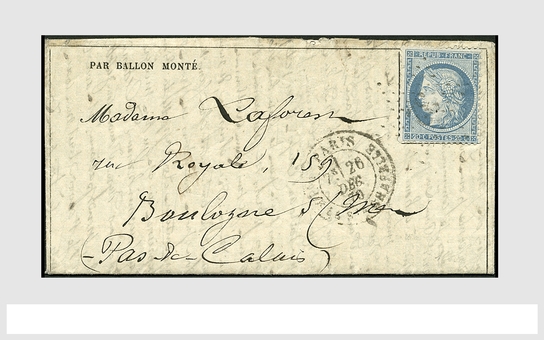 PAR BALLON MONTÉ.
REPUB. FRANC.
20 C. POSTES 20 C.
Madame Laforen
rue Royale, 159
PARIS
26
DEC
70
Boulogne s/Mer
(Pas-de-Calais)